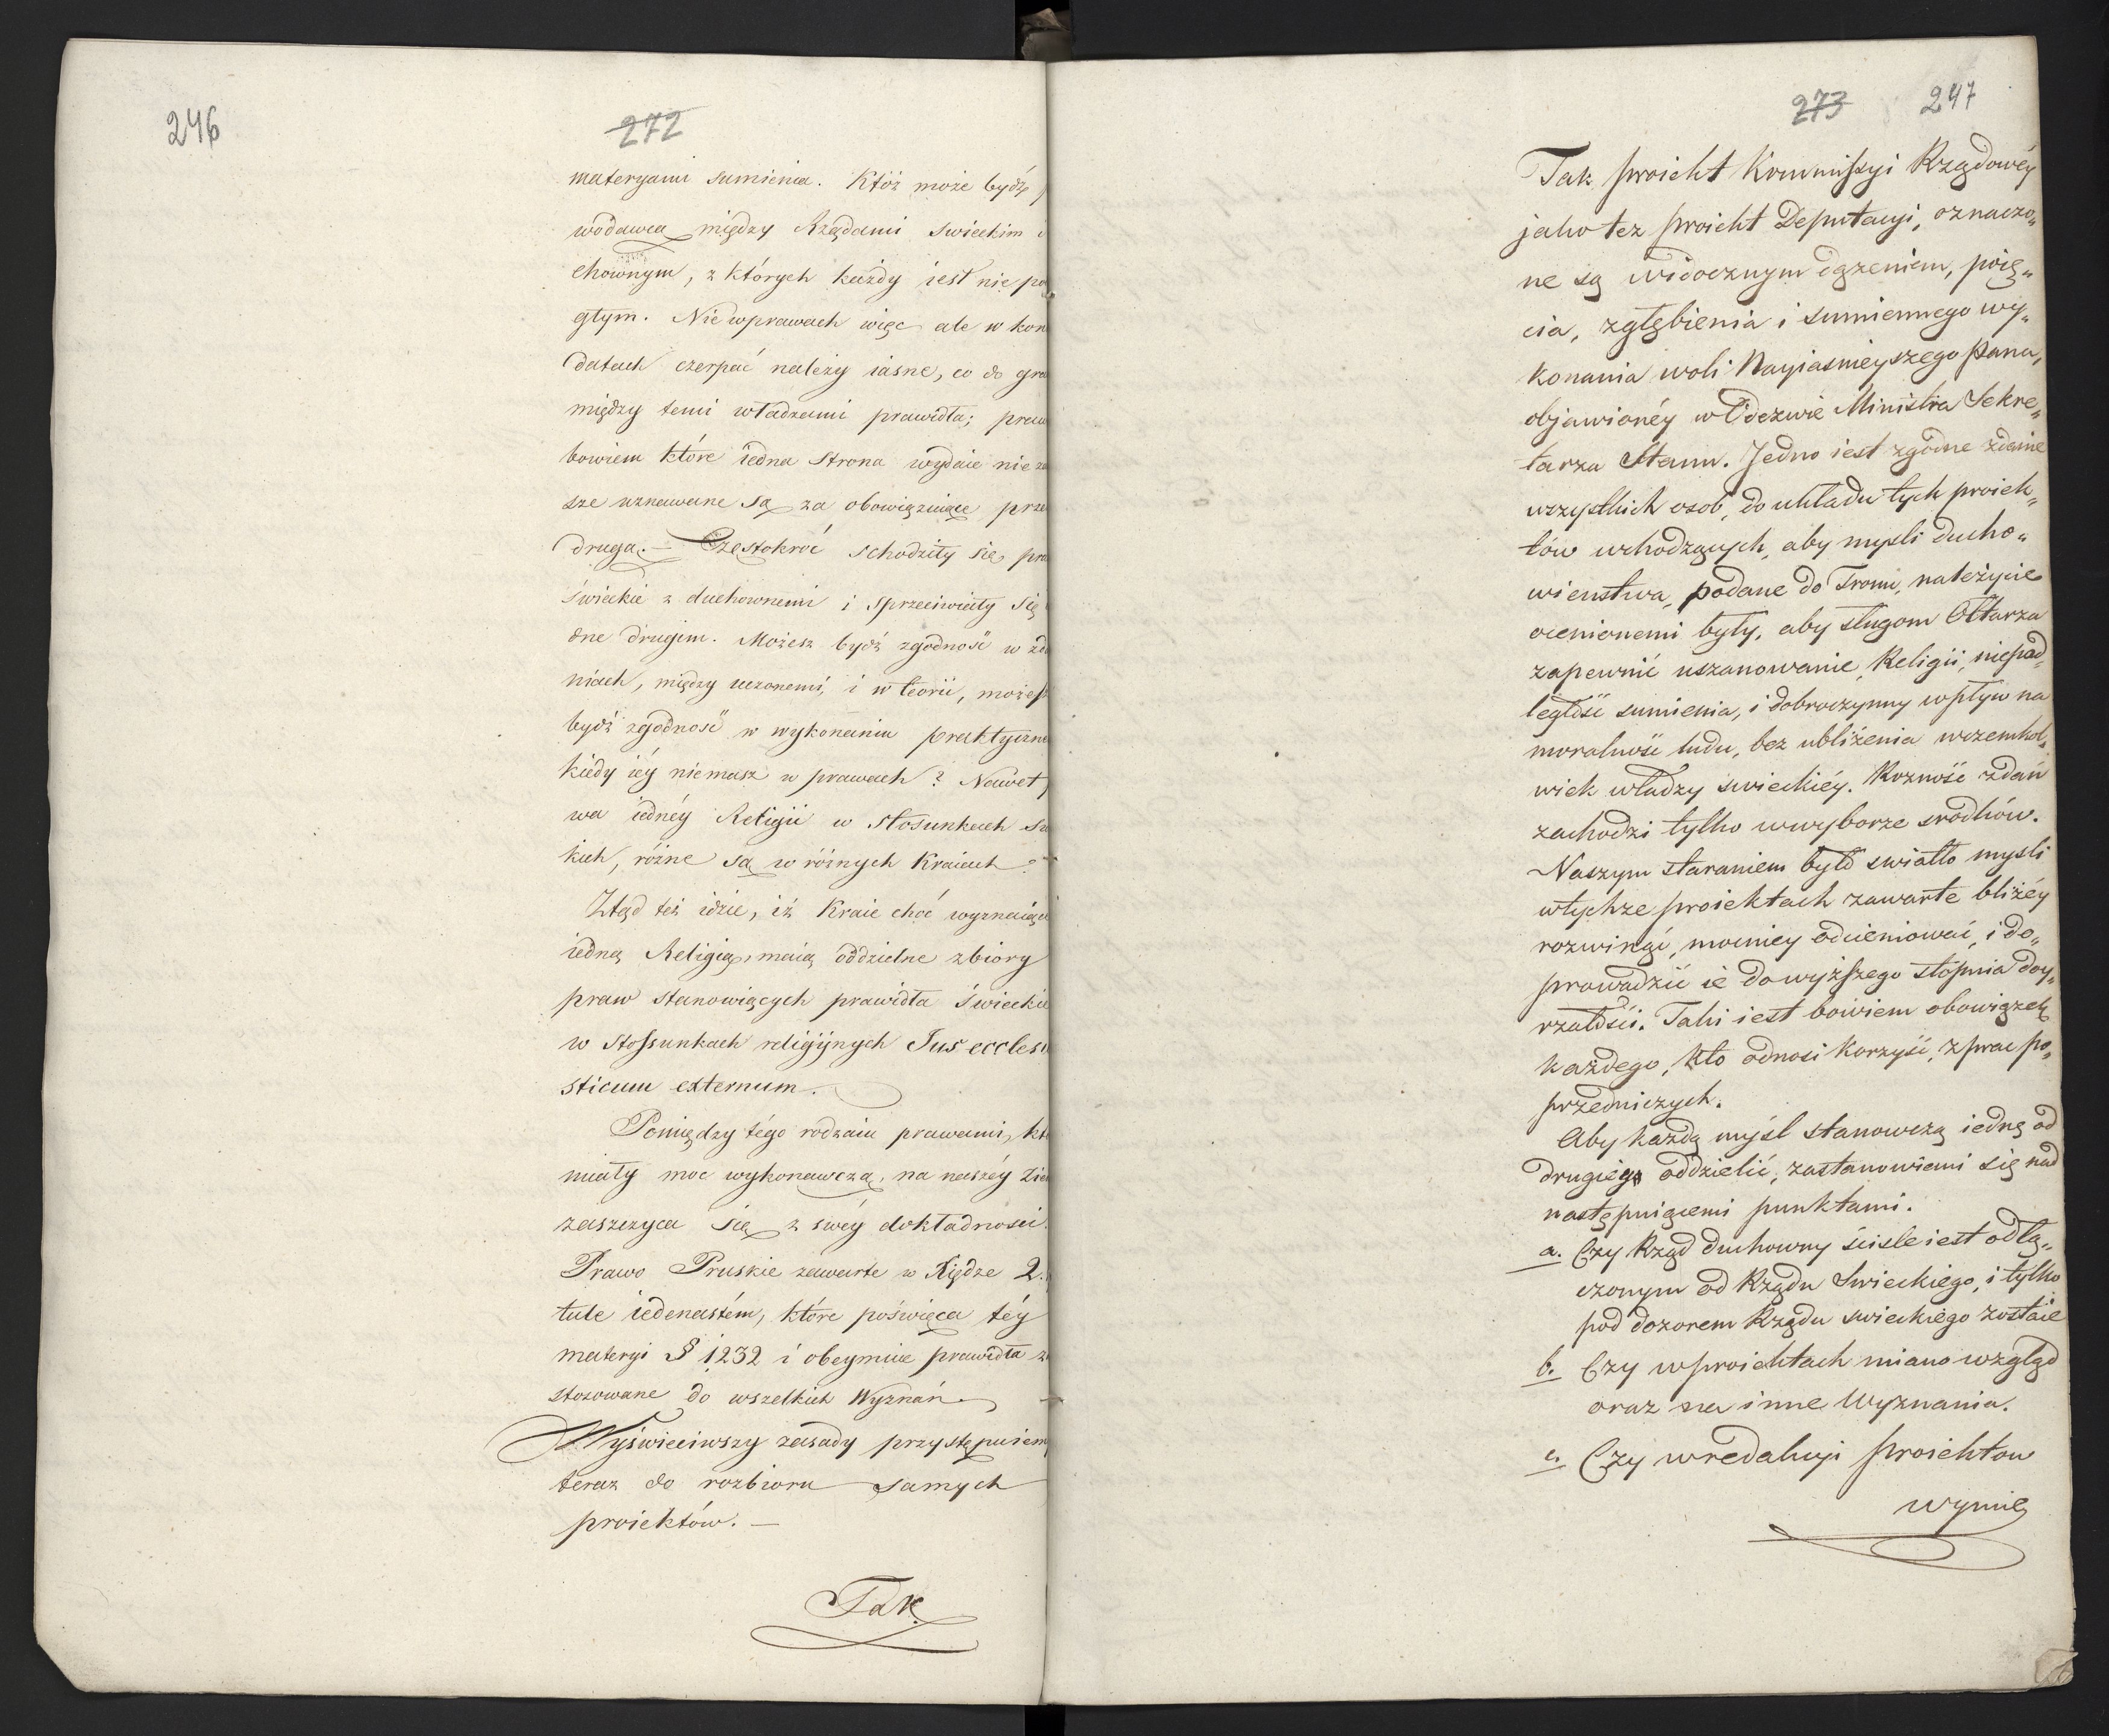 246
272
materyami sumienia. Któż może bydź
wodawca między Rządami swieckim
chownym, z których każdy iest nie po
głym. Nie w prawach więc ale w kon
datach czerpać należy iasne, co do gra
między temi władzami prawidła; praw
bowiem które iedna strona wydaie nie za
sze uznawane są za obowięzuiące prze
druga. — Częstokroć schodziły się pra
świeckie z duchownemi i sprzeciwiały się
dne drugim. Możesz bydź zgodność w zda
niach, między uczonemi, i w teorii, możesz
bydź zgodność w wykonaniu praktyczne
kiedy iéy niemasz w prawach? Nawet
wa iednéy Religii w stosunkach sw
kich, różne są w różnych Kraiach.
Ztąd też idzie, iż Kraie choć wyznaiące
iedną Religią, maią oddzielne zbiory
praw stanowiących prawidła świeckie
w stossunkach religijnych Jus eccles
sticum externum.
Pomiędzy tégo rodzaiu prawami, któ
miały moc wykonawczą, na naszéy Zie
zaszczyca się z swéy dokładnosci
Prawo Pruskie zawarte w Xiędze 2.
tule iedenastém, które poświęca téy
materyi § 1232 i obeymuie prawidła za
stosowane do wszelkich Wyznań.
Wyświeciwszy zasady przystępuiem
teraz do rozbioru samych
proiektów. —
Tak
273 247
Tak proiekt Kommissyi Rządowéy
jako tez proiekt Deputacyi, oznaczo„
ne są widocznym dązeniem, poię„
cia, zgłębienia i sumiennego wy„
konania woli Nayiasnieyszego Pana,
objawionéy w Odezwie Ministra Sekre„
tarza Stanu. Jedno iest zgodne zdanie
wszystkich osob, do układu tych proiek„
tów wchodzących, aby mysli ducho„
wienstwa, podane do Tronu, należycie
ocenionemi były, aby sługom Ołtarza
zapewnić uszanowanie, Religii, niepod„
ległość sumienia, i dobroczynny wpływ na
moralność ludu, bez ubliżenia wczemkol„
wiek władzy swieckiéy. Rozność zdań
zachodzi tylko w wyborze srodków.
Naszym staraniem było swiatło mysli
wtychze proiektach zawarte bliżéy
rozwinąć, mocniey odcieniować, i do„
prowadzić ie do wyższego stopnia doy„
rzałości. Taki iest bowiem obowiązek
każdego, kto odnosi korzyść, z prac po„
przedniczych.
Aby każdą myśl stanowczą iedną od
drugiego oddzielić, zastanowiemi się nad
następuiącemi punktami.
a. Czy Rząd duchowny ściśle iest odłą„
czonym od Rządu Swieckiego, i tylko
pod dozorem Rządu swieckiego zostaie
b. Czy w proiektach miano wzgląd
oraz na inne Wyznania.
c. Czy w redakcyi proiektow
wymie